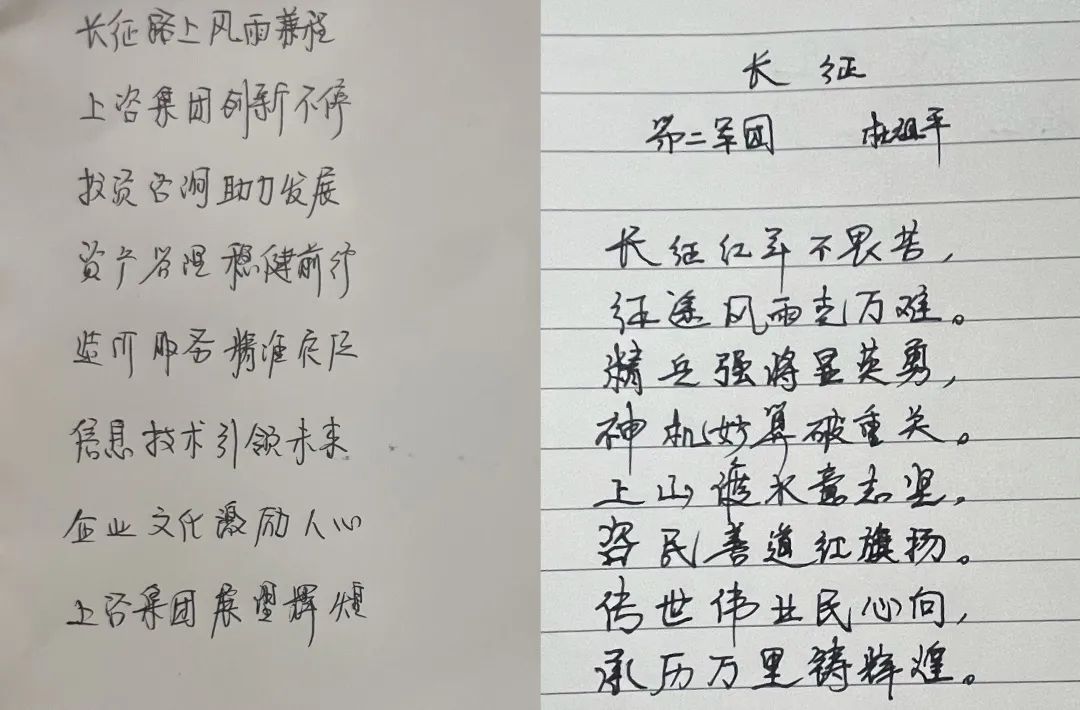 长征路上风雨兼程
上咨集团创新不停
投资咨询助力发展
资产管理稳健前行
监所服务精准定位
信息技术引领未来
企业文化激励人心
上咨集团展望辉煌
长征
第二军团 杜祖平
长征红军不畏苦,
征途风雨克万难。
精兵强将显英勇,
神机妙算破重关。
上山渡水意志坚,
咨民善道红旗扬。
传世伟业民心向,
承历万里铸辉煌。